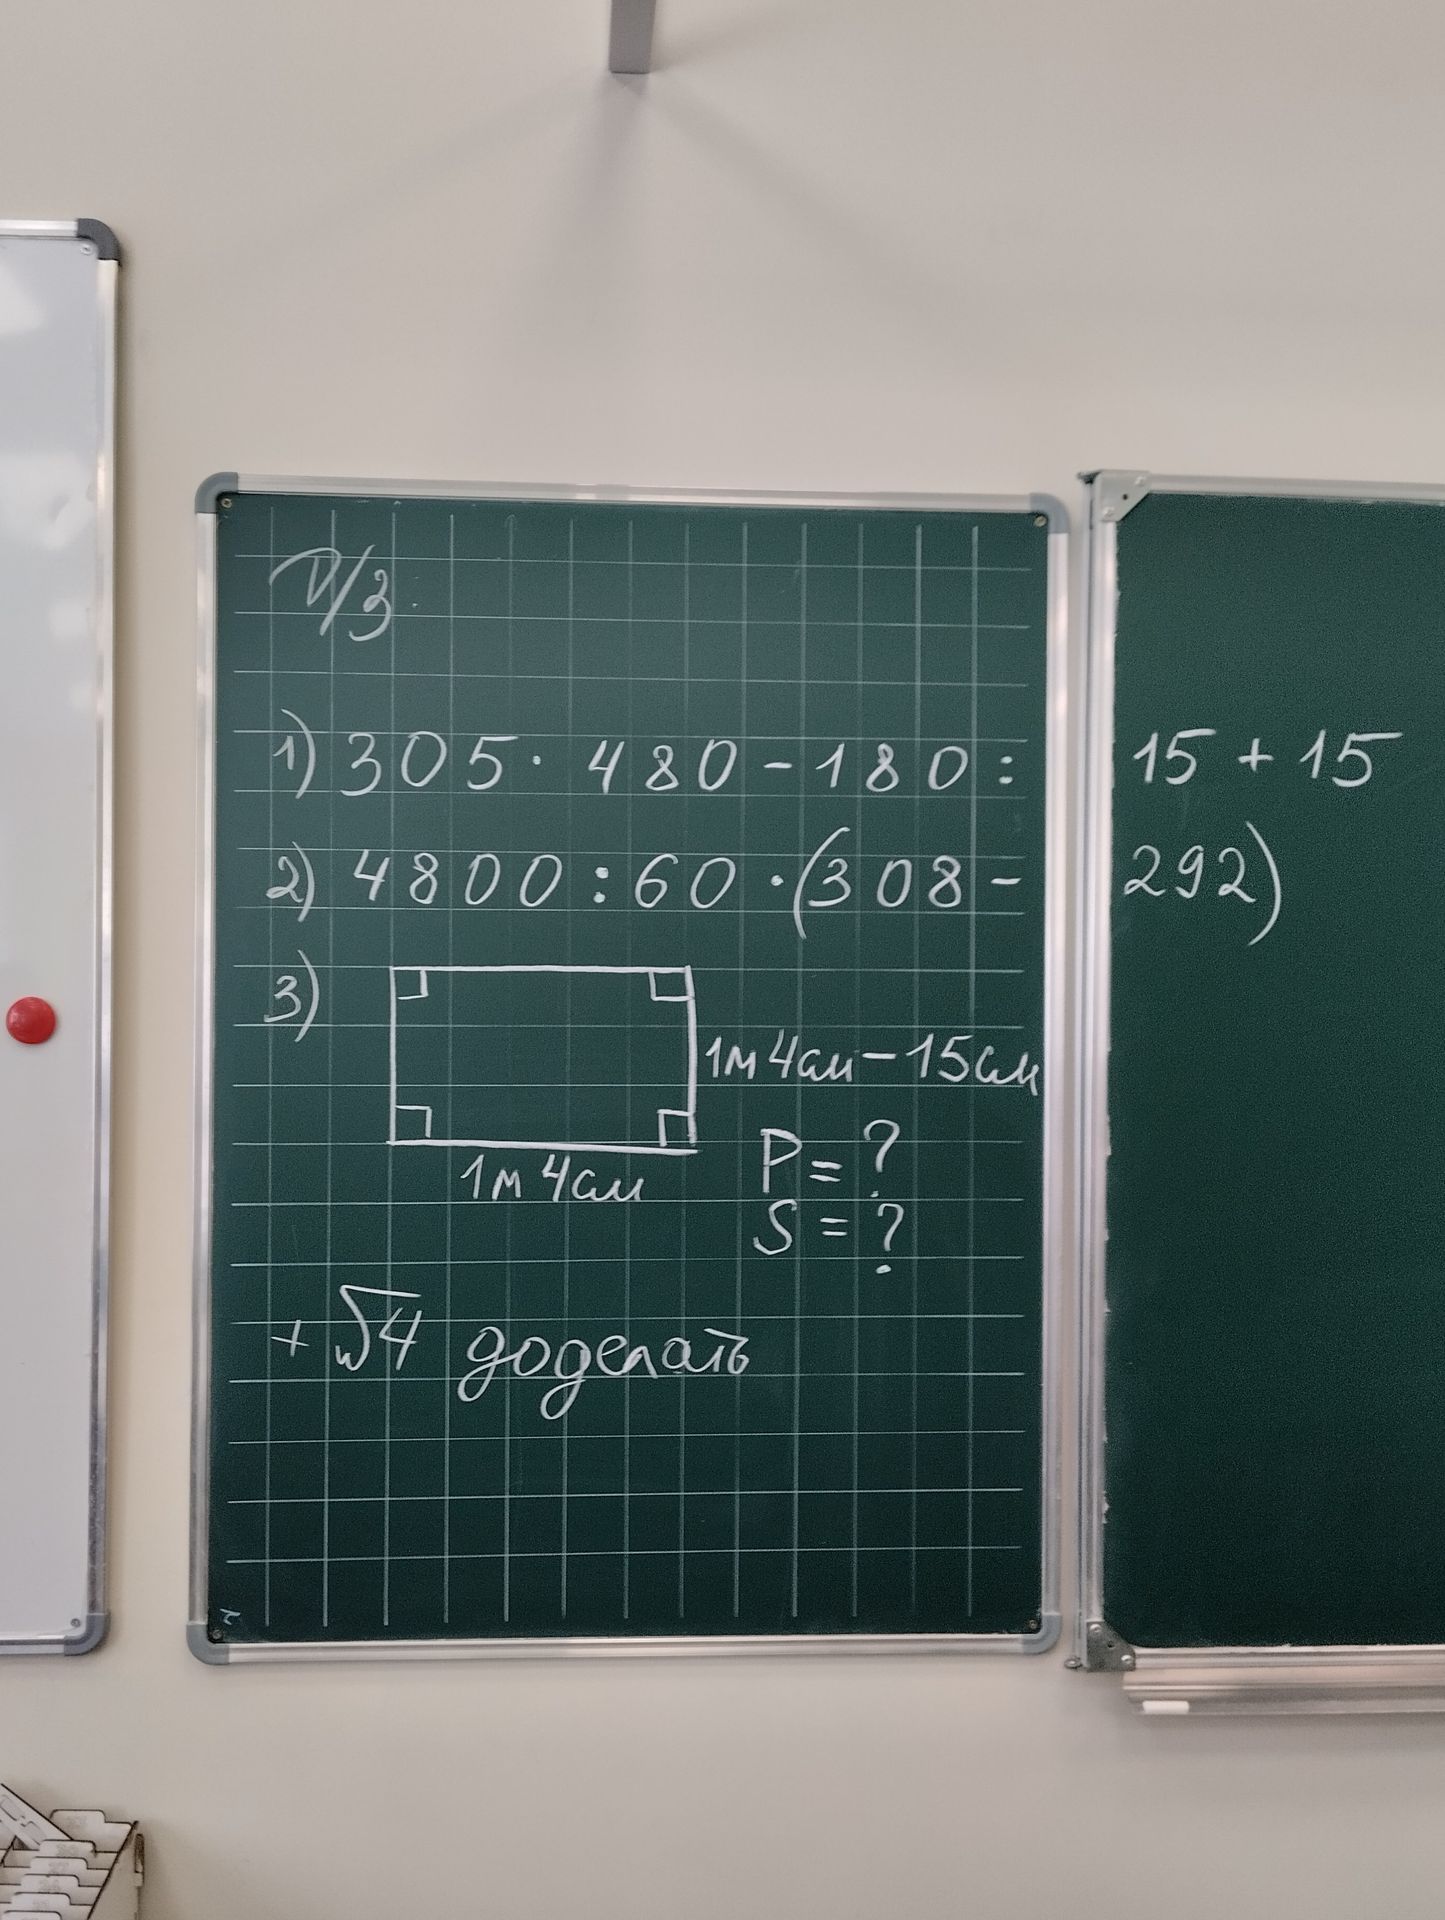 Д/З.
1) 305 · 480 - 180 : 15 + 15
2) 4800 : 60 · (308 - 292)
3)
1м 4см - 15см
1м 4см
P = ?
S = ?
+ √4 доделать